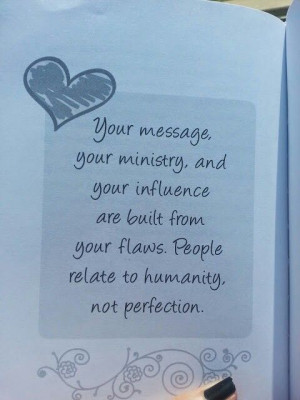 Your message,
your ministry, and
your influence
are built from
your flaws. People
relate to humanity,
not perfection.